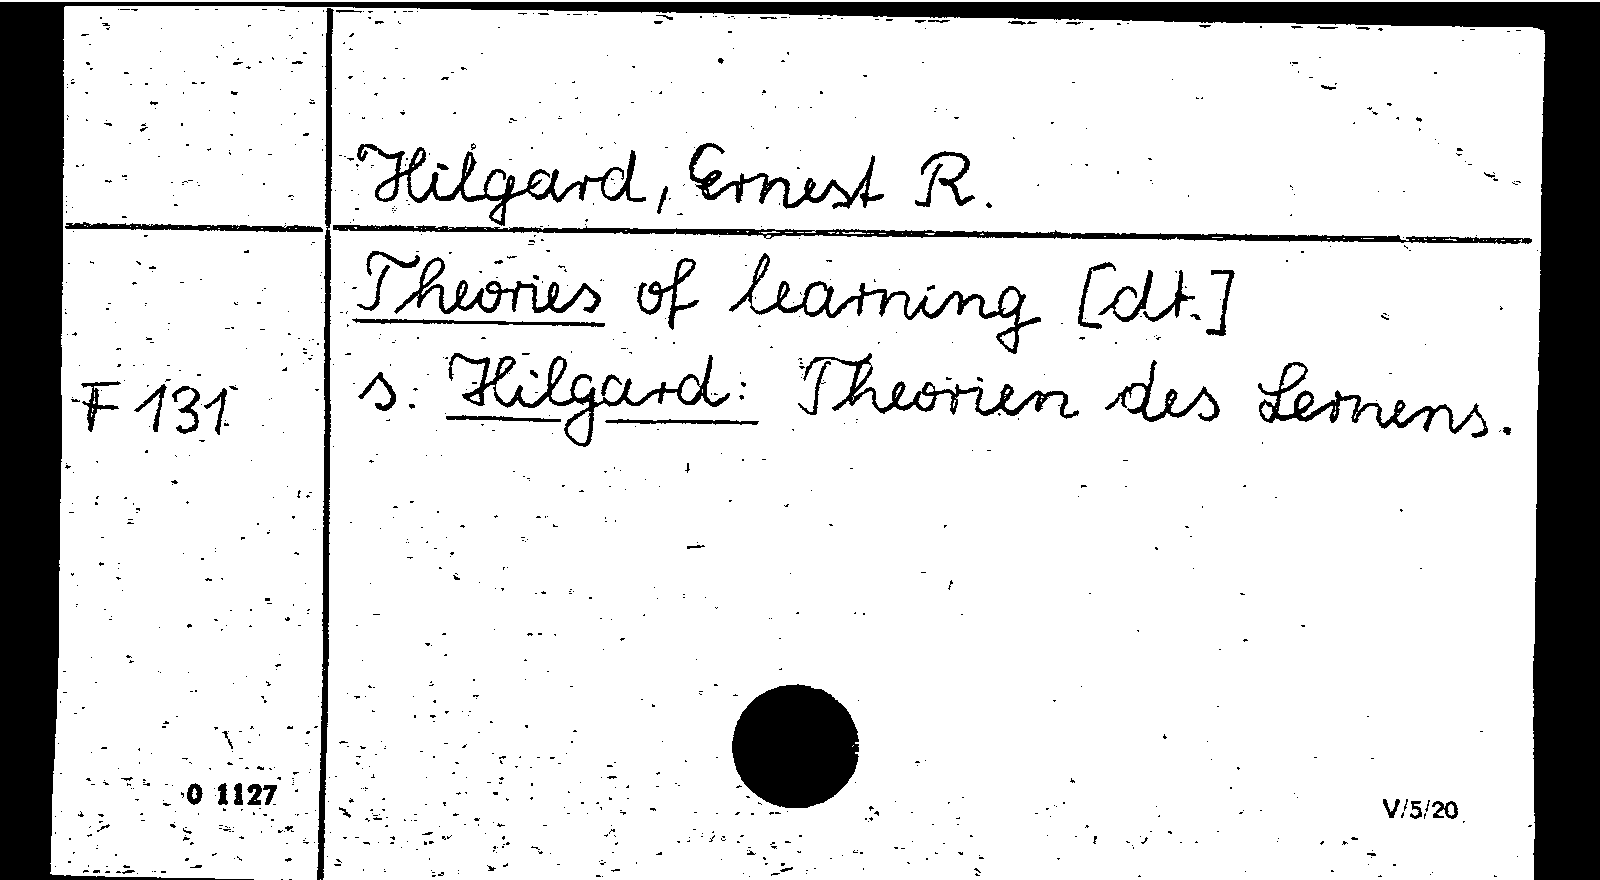 Hilgard, Ernest R.
Theories of learning [dt.]
F 131 s. Hilgard: Theorien des Lernens.
O 1127
V/5/20